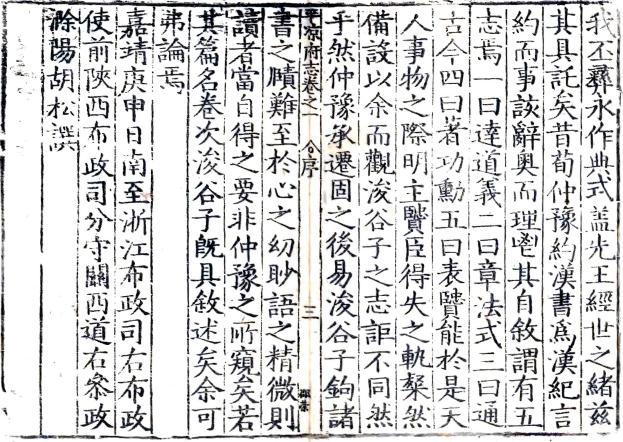 我丕彞永作典式盖先王經世之緒兹
其具託矣昔荀仲豫約漢書爲漢紀言
約而事該辭奥而理鬯其自敘謂有五
志焉一曰達道義二曰章法式三曰通
古今四曰著功勳五曰表贒能於是天
人事物之際明主贒臣得失之軌粲然
備設以余而觀浚谷子之志詎不同然
乎然仲豫承遷固之後易浚谷子鉤諸
平凉府志卷之一 序 三
書之賾難至於心之幼眇語之精微則
讀者當自得之要非仲豫之所窺矣若
其篇名卷次浚谷子旣具敘述矣余可
弗論焉
嘉靖庚申日南至浙江布政司右布政
使前陝西布政司分守關西道右叅政
滁陽胡松譔